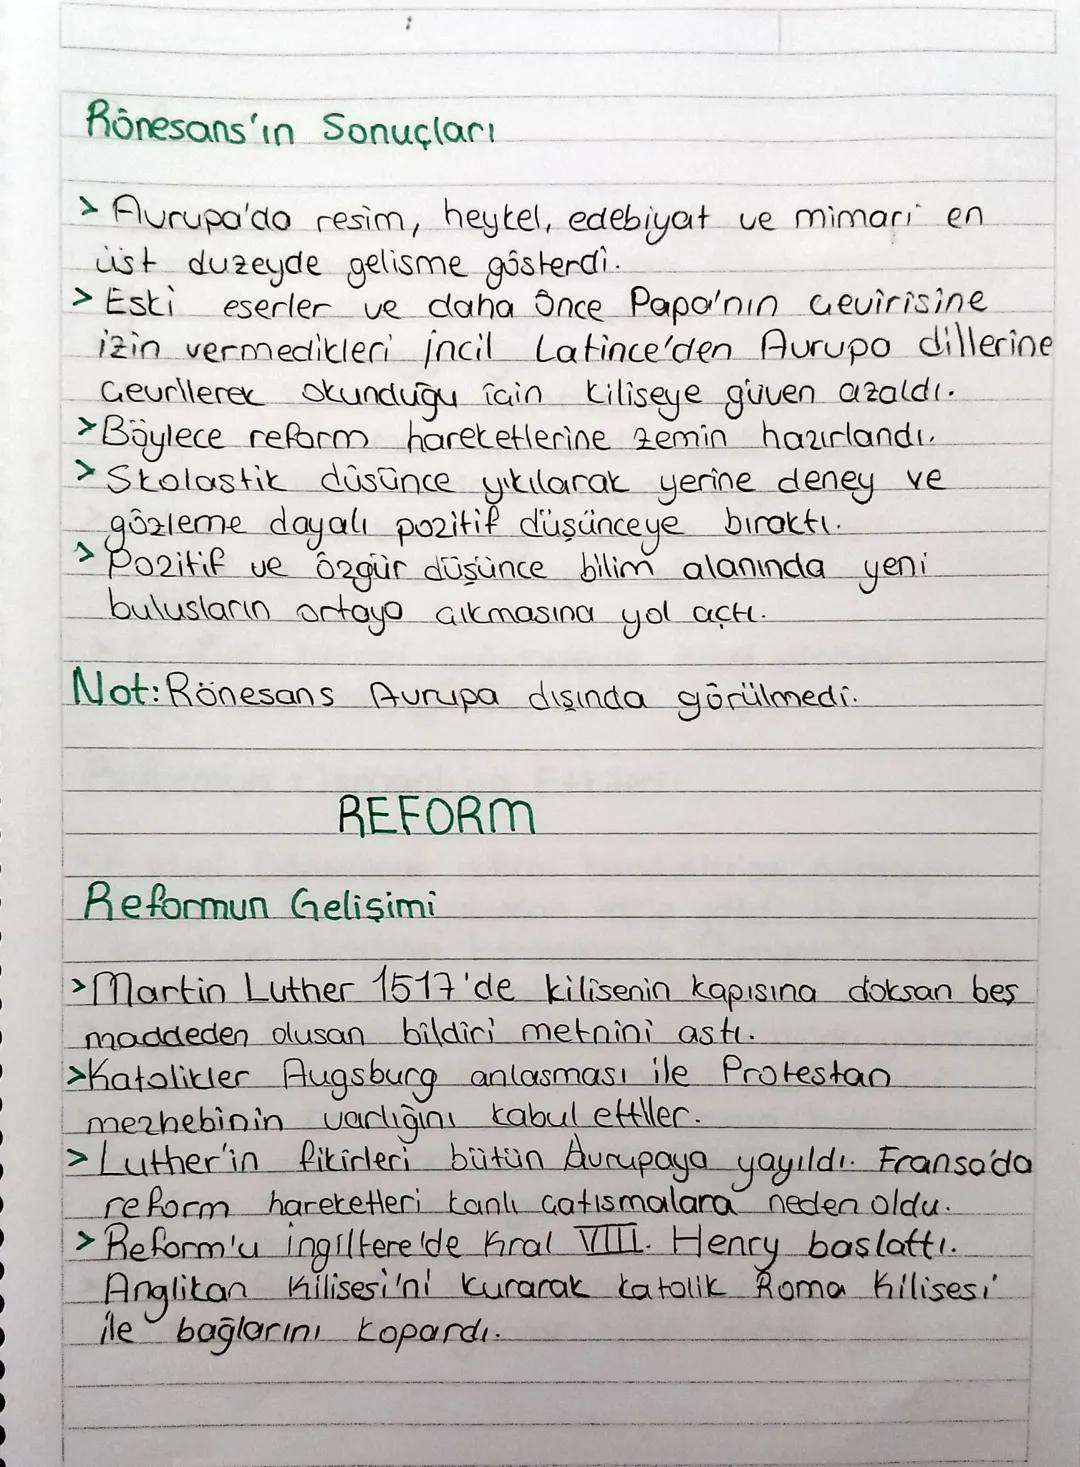 Rönesans'ın Sonuçları
> Avrupa'da resim, heykel, edebiyat ve mimari en
üst duzeyde gelisme gösterdi.
> Eski eserler ve daha önce Papa'nın Çevirisine
izin vermedikleri incil Latince'den Avrupa dillerine
Çevrilerek okunduğu için kiliseye güven azaldı.
> Böylece reform hareketlerine zemin hazırlandı.
> Skolastik düsünce yıkılarak yerine deney ve
gözleme dayalı pozitif düşünceye bıraktı.
> Pozitif ve özgür düşünce bilim alanında yeni
bulusların ortaya çıkmasına yol açtı.
Not: Rönesans Avrupa dışında görülmedi.
REFORM
Reformun Gelişimi
> Martin Luther 1517'de kilisenin kapısına doksan beş
maddeden olusan bildiri metnini astı.
> Katolikler Augsburg anlasması ile Protestan
mezhebinin varlığını kabul ettiler.
> Luther'in fikirleri bütün Avrupaya yayıldı. Fransa'da
reform hareketleri kanlı çatısmalara neden oldu.
> Reform'u ingiltere'de Kral VIII. Henry baslattı.
Anglikan Kilisesi'ni kurarak katolik Roma Kilisesi
ile bağlarını kopardı.